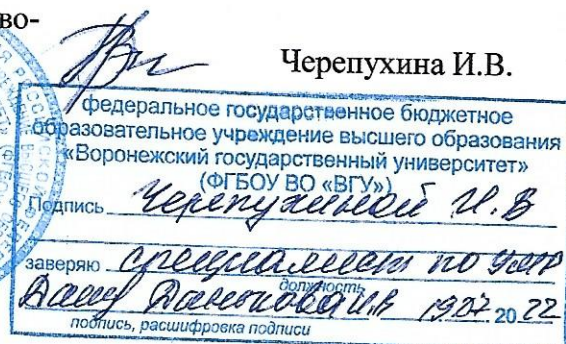 во-
Черепухина И.В.
федеральное государственное бюджетное
образовательное учреждение высшего образования
«Воронежский государственный университет»
(ФГБОУ ВО «ВГУ»)
Подпись Черепухиной И.В
заверяю специалист по УМР
должность
Данькова И.В 19.07 20 22
подпись, расшифровка подписи